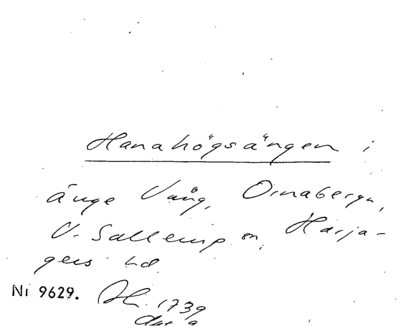 Hanahögsängen i
änge Vång, Ornabergn,
V. Sallerup sn, Harja-
gers hd.
Nr 9629. 1739